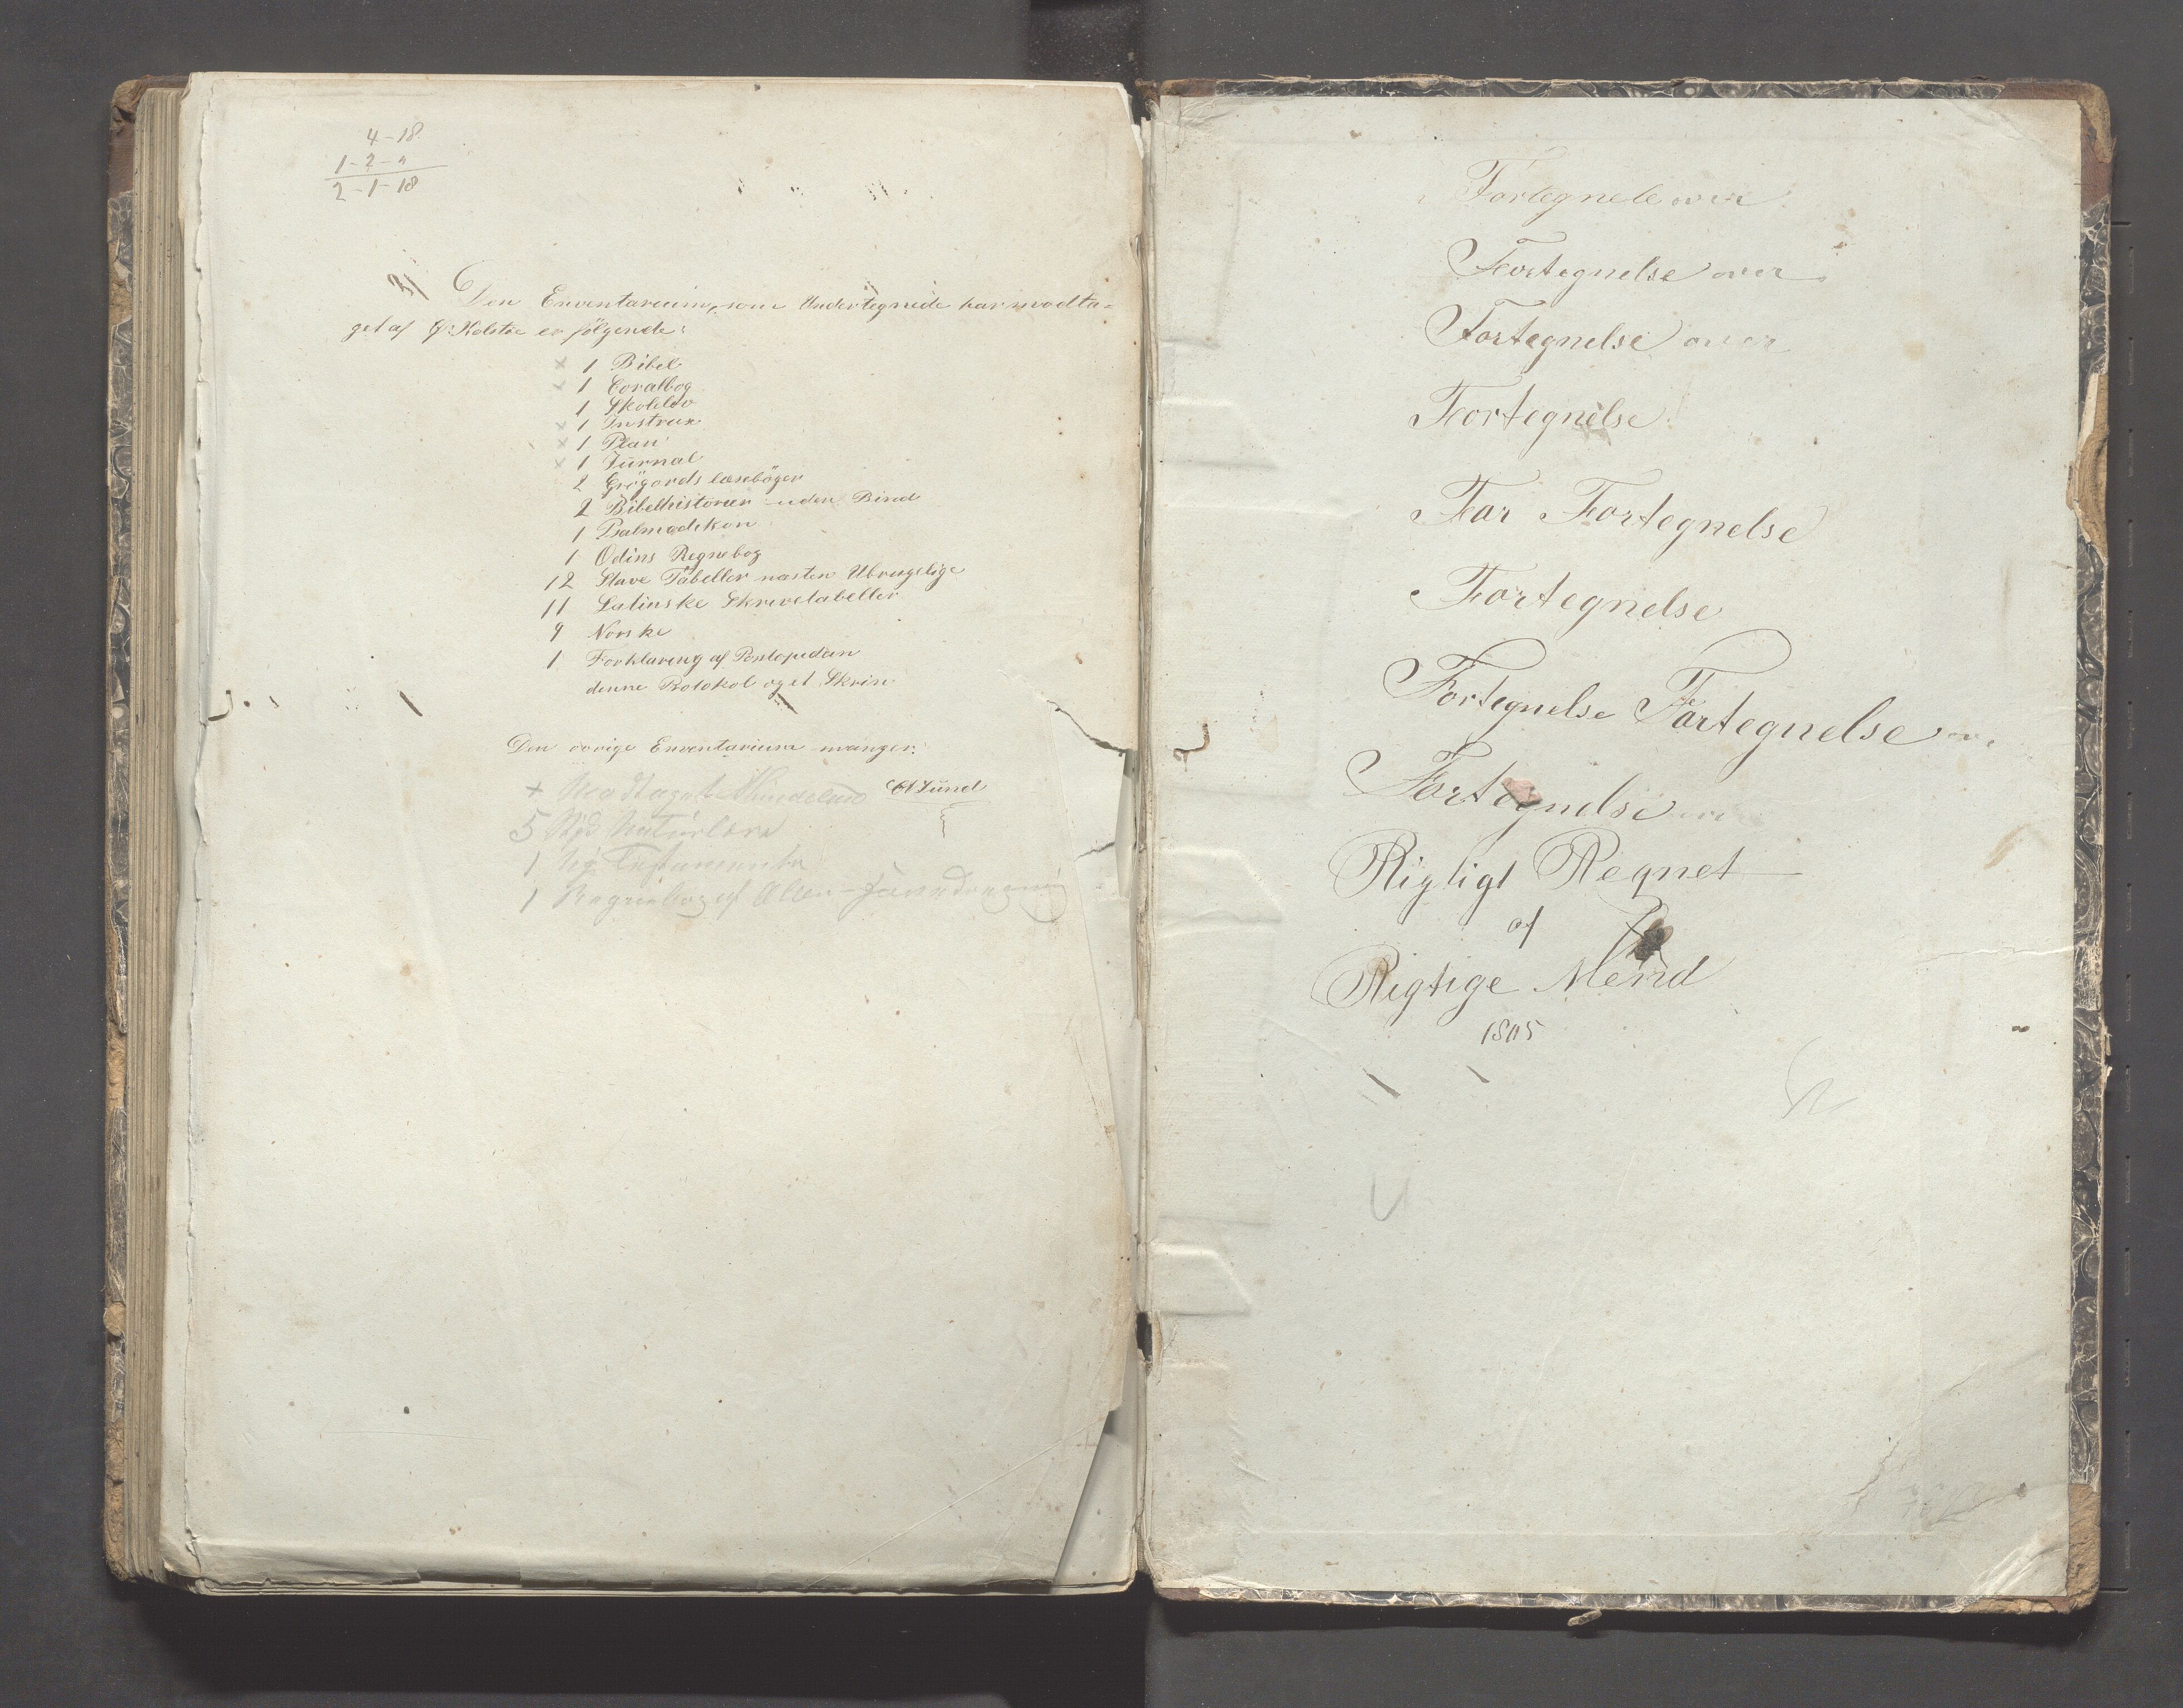 4-18
1-2-"
2-1-18
Den Enventareium, som Undertegnede har modta-
get af G. Kolstøe er følgende:
× 1 Bibel
× 1 Coralbog
1 Skolelov
× 1 Instrux
× 1 Plan
× 1 Jurnal
2 Grøgards læsebøger
2 Bibelhistorier uden Bind
1 Psalmodikon
1 Odins Regnebog
12 Stave Tabeller næsten Ubrugelige
11 Latinske Skrivetabeller
9 Norske
1 Forklaring af Pontopidan
denne Protokol og et Skrin
Den øvrige Enventarium manger.
+ Modtaget
Lund
5 Naturlære
1 Ny Testamente
1 Regnebog af
Fortegnele over
Fortegnelse over
Fortegnelse over
Fortegnelse
For Fortegnelse
Fortegnelse
Fortegnelse Fortegnelse ov
Fortegnelse
Rigtigt Regnet
af
Rigtige Mend
1805